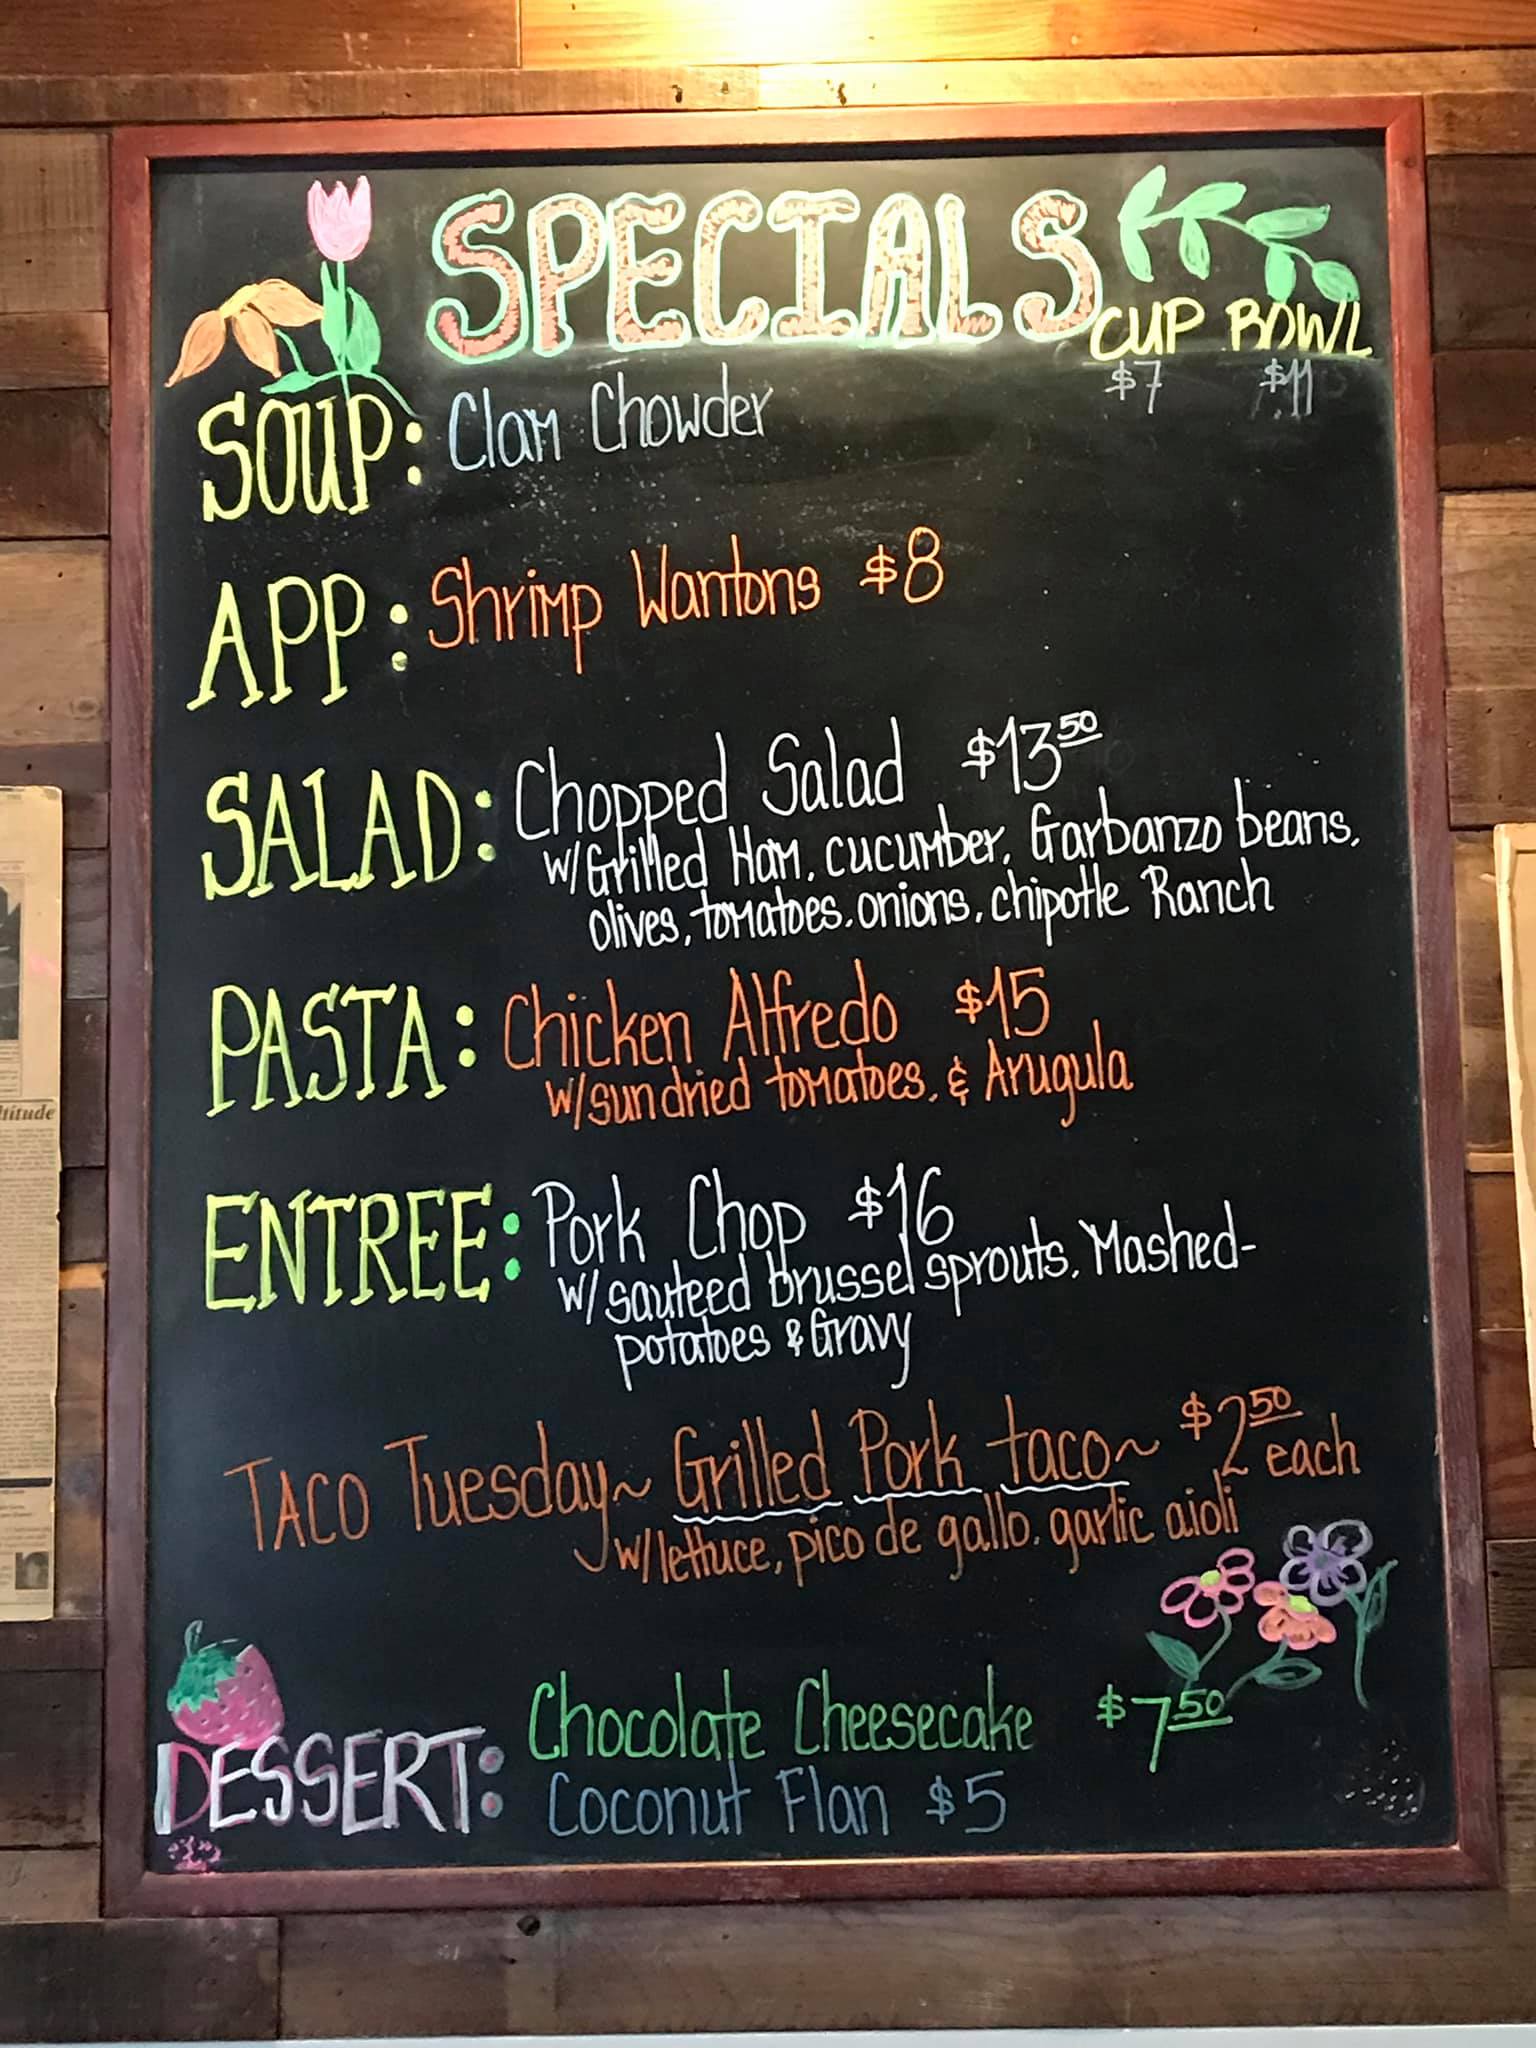 SPECIALS
CUP BOWL
$7 $11
SOUP: Clam Chowder
APP: Shrimp Wantons $8
SALAD: Chopped Salad $13.50
w/Grilled Ham, cucumber, Garbanzo beans,
olives, tomatoes, onions, chipotle Ranch
PASTA: Chicken Alfredo $15
w/sundried tomatoes, & Arugula
ENTREE: Pork Chop $16
w/sauteed brussel sprouts, Mashed-
potatoes & Gravy
TACO Tuesday~ Grilled Pork taco~ $2.50 each
w/lettuce, pico de gallo, garlic aioli
DESSERT: Chocolate Cheesecake $7.50
Coconut Flan $5
ltitude